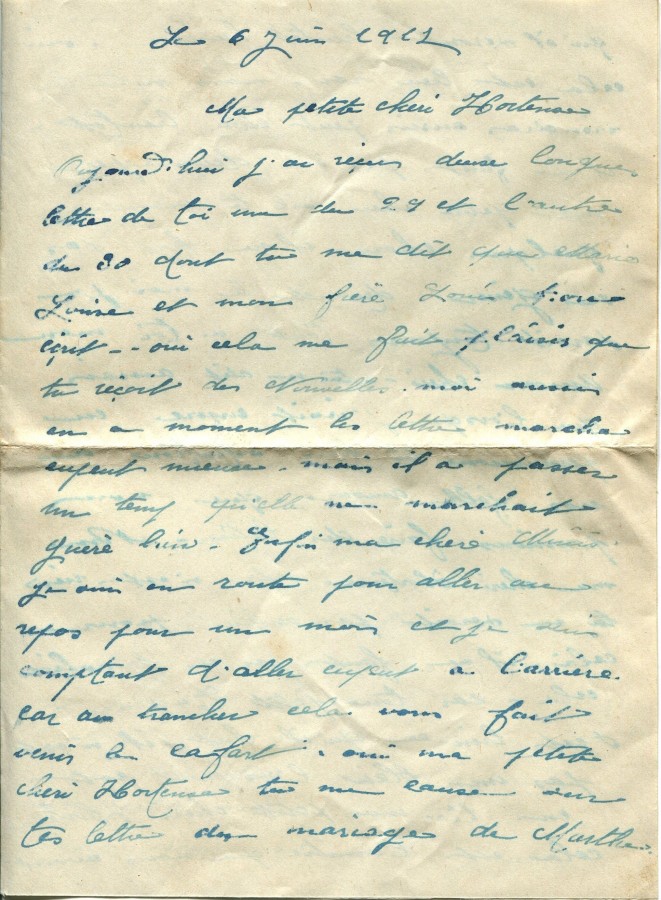 Le 6 Juin 1917
Ma petite chéri Hortense
Oujourd'hui j'ai reçus deuse longues
lettre de toi une du 29 et l'autre
du 30 dont tu me dit que
Louise et mon frerè Louis t'on
ecrit -- oui cela me fait plaisir que
tu reçoit des Nouvelles. moi aussis
en a moment les lettre marcha
mieuse. mais il a passer
un temp qu'elle ne marchait
guerè bien - Enfin ma cherè
Je suis en route pour aller au
repos pour un mois et je suis
comptant d'aller un peut a l'arrière.
car au trancher cela vous fait
venir le cafart. oui ma petite
cheri Hortense tu me cause sur
tes lettre du mariage de Marthe.